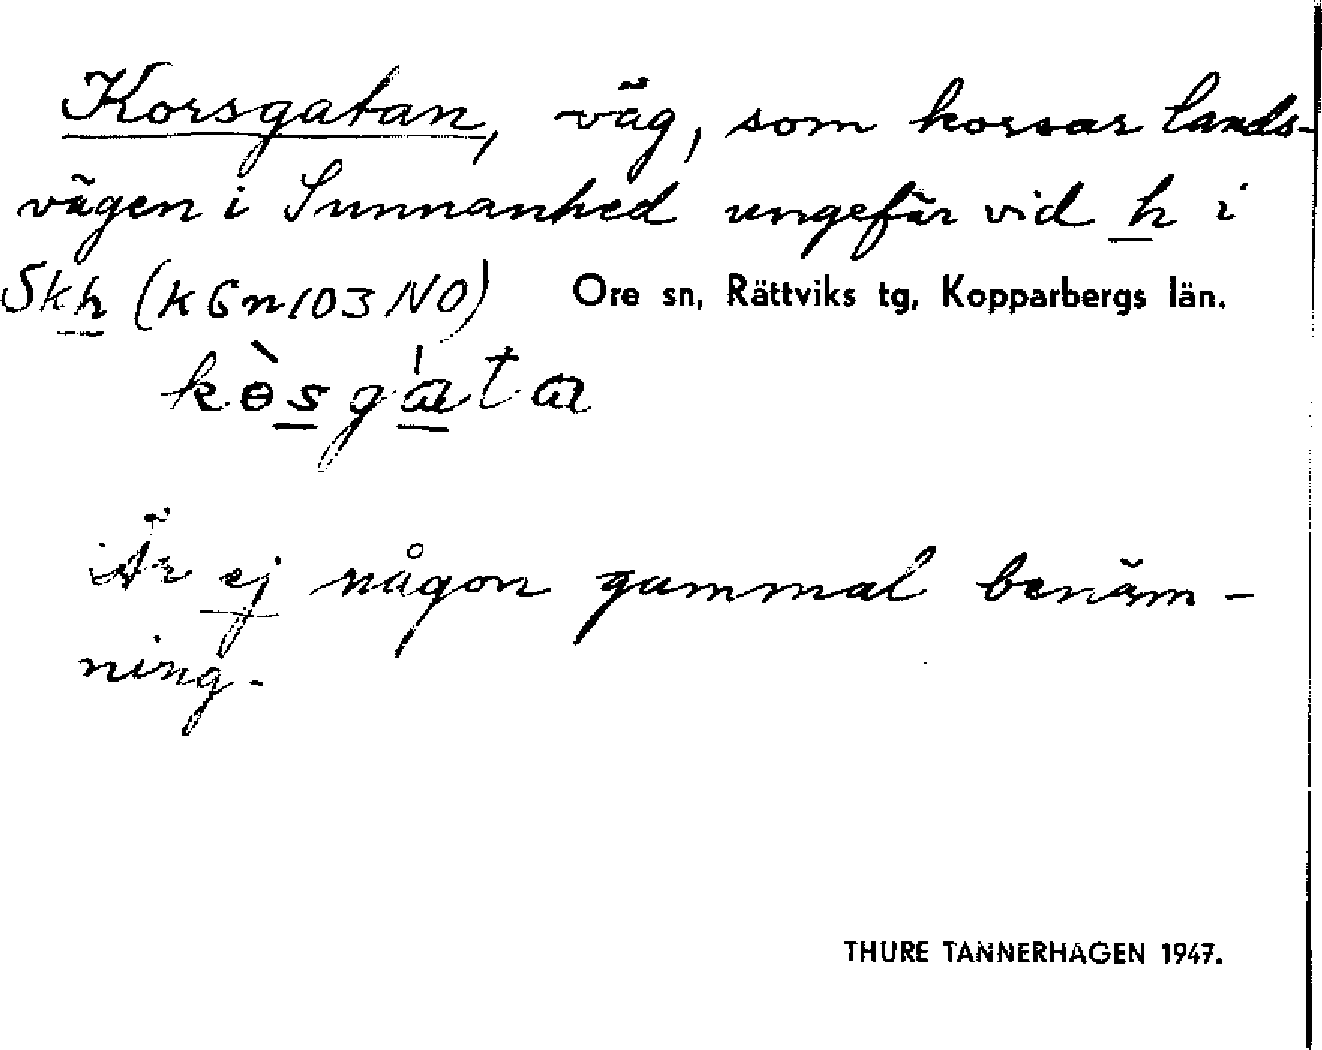 Korsgatan, väg, som korsar lands-
vägen i Sunnanhed ungefär vid h i
Skh (K6n103NO) Ore sn, Rättviks tg, Kopparbergs län.
kɵ̀sgàta
Är ej någon gammal benäm-
ning.
THURE TANNERHAGEN 1947.